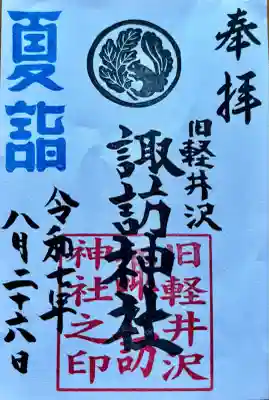 奉拝
旧軽井沢
諏訪神社
夏詣
令和七年
八月二十六日
旧軽井沢
諏訪
神社之印